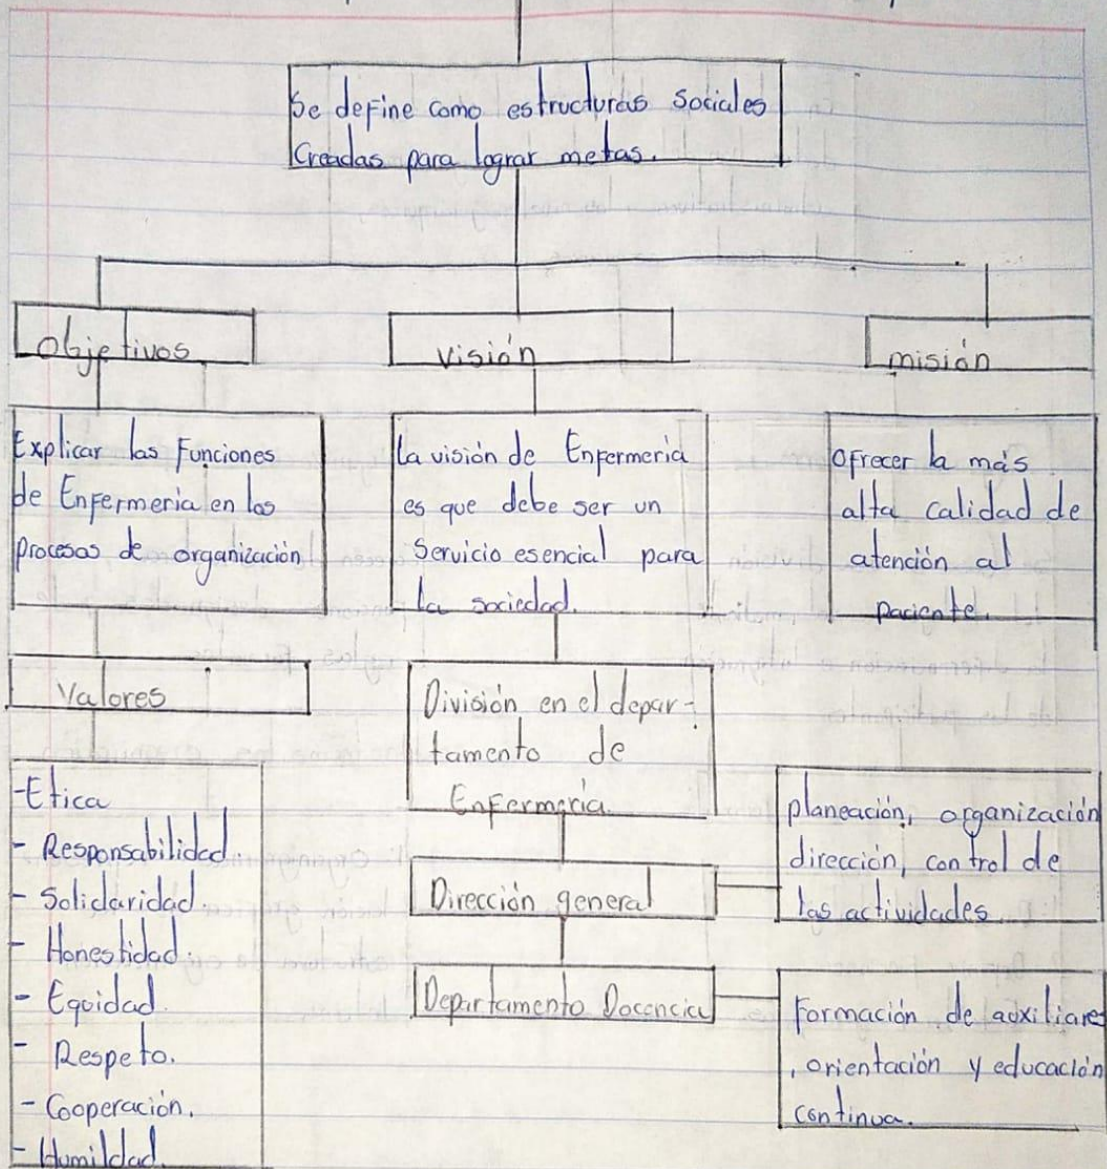 Se define como estructuras sociales
Creadas para lograr metas.
Objetivos
visión
misión
Explicar las Funciones
de Enfermeria en los
procesos de organización
La visión de Enfermeria
es que debe ser un
servicio esencial para
la sociedad.
ofrecer la más
alta calidad de
atención al
paciente.
Valores
-Etica
- Responsabilidad.
- Solidaridad.
- Honestidad.
- Equidad.
- Respeto.
- Cooperación.
- Humildad.
División en el depar-
tamento de
Enfermería.
Dirección general
planeación, organización
dirección, control de
las actividades.
Departamento Docencia
Formación de auxiliares
, orientación y educación
continua.